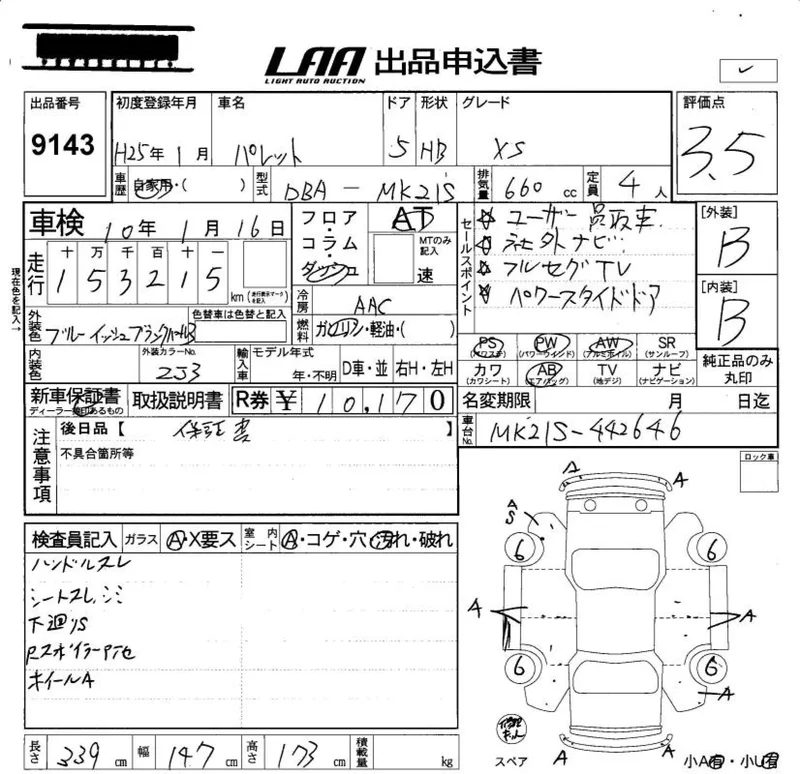 LAA 出品申込書
LIGHT AUTO AUCTION
出品番号 初度登録年月 車名 ドア 形状 グレード 評価点
9143 H25年 1月 パレット 5 HB XS 3.5
車歴 自家用・( ) 型式 DBA - MK21S 排気量 660 cc 定員 4人
車検 10年 1月 16日
フロア・コラム・ダッシュ AT
MTのみ記入 速
セールスポイント
☆ ユーザー買取車
☆ 社外ナビ
☆ フルセグTV
☆ パワースライドドア
[外装] B
[内装] B
現在色を記入→
走行 十 万 千 百 十 一
1 5 3 2 1 5 km (走行表示マークを記入)
冷房 AAC
燃料 ガソリン・軽油・( )
外装色 色替車は色替と記入
内装色 外装カラーNo. ZJ3
輸入車 モデル年式 年・不明 D車・並 右H・左H
PS (パワステ) PW (パワーウインド) AW (アルミホイル) SR (サンルーフ)
カワ (カワシート) AB (エアバッグ) TV (地デジ) ナビ (ナビゲーション)
純正品のみ丸印
新車保証書 ディーラー捺印あるもの 取扱説明書 R券 ¥ 10,170
名変期限 月 日迄
車台No. MK21S-442646
注意事項
後日品【 保証書 】
不具合箇所等
ロック車
検査員記入 ガラス A・X要ス 室内シート A・コゲ・穴・汚れ・破れ
ハンドルスレ
シートスレ、シミ
下廻りS
Rスポイラーハゲ他
ホイールA
A A
A
S
6 6
A A
6 6
A
A A
修理キット
スペア
小A有・小U有
長さ 339 cm 幅 147 cm 高さ 173 cm 積載量 kg